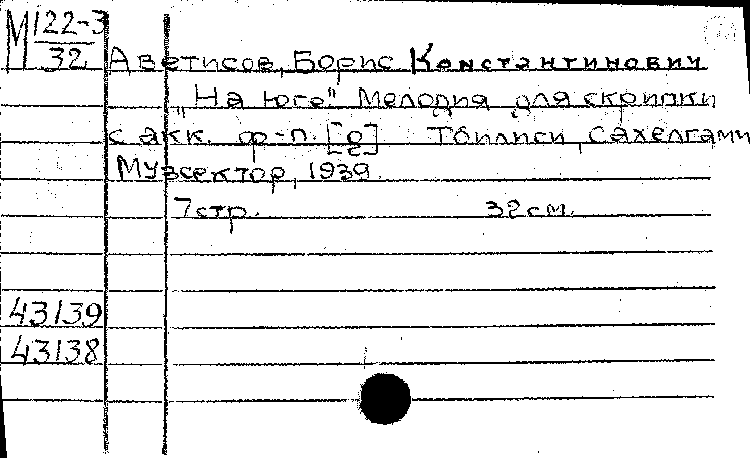 М 122-3
32
Аветисов, Борис Константинович
"На юге" Мелодия для скрипки
с акк. ф-п. [g] Тбилиси, Сахелгами
Музсектор, 1939.
7 стр. 32 см.
43139
43138